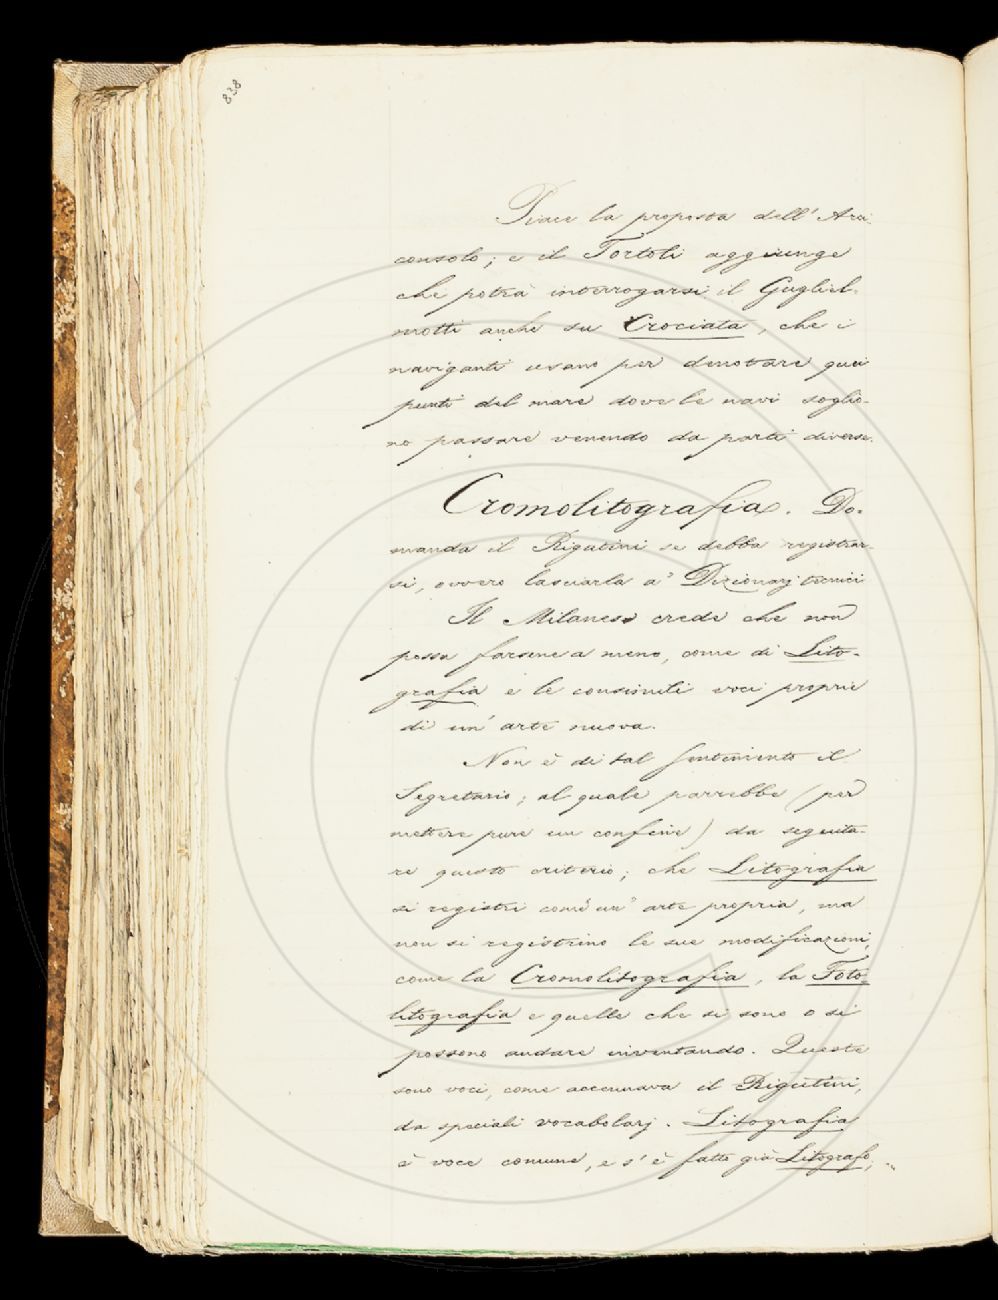 838
Piace la proposta dell'Arci-
consolo; e il Tortoli aggiunge
che potrà interrogarsi il Gugliel-
motti anche su Crociata, che i
naviganti usano per denotare quei
punti del mare dove le navi soglio-
no passare venendo da parti diverse.
Cromolitografia. Do-
manda il Rigutini se debba registrar-
si, ovvero lasciarla a' Dizionarj tecnici
Il Milanesi crede che non
possa farsene a meno, come di Lito-
grafia e le consimili voci proprie
di un' arte nuova.
Non è di tal sentimento il
Segretario; al quale parrebbe (per
mettere pure un confine) da seguita-
re questo criterio; che Litografia
si registri com'un' arte propria, ma
non si registrino le sue modificazioni,
come la Cromolitografia, la Foto-
litografia e quelle che si sono o si
possono andare inventando. Queste
sono voci, come accennava il Rigutini,
da speciali vocabolarj. Litografia
è voce comune, e s'è fatto già Litografo;